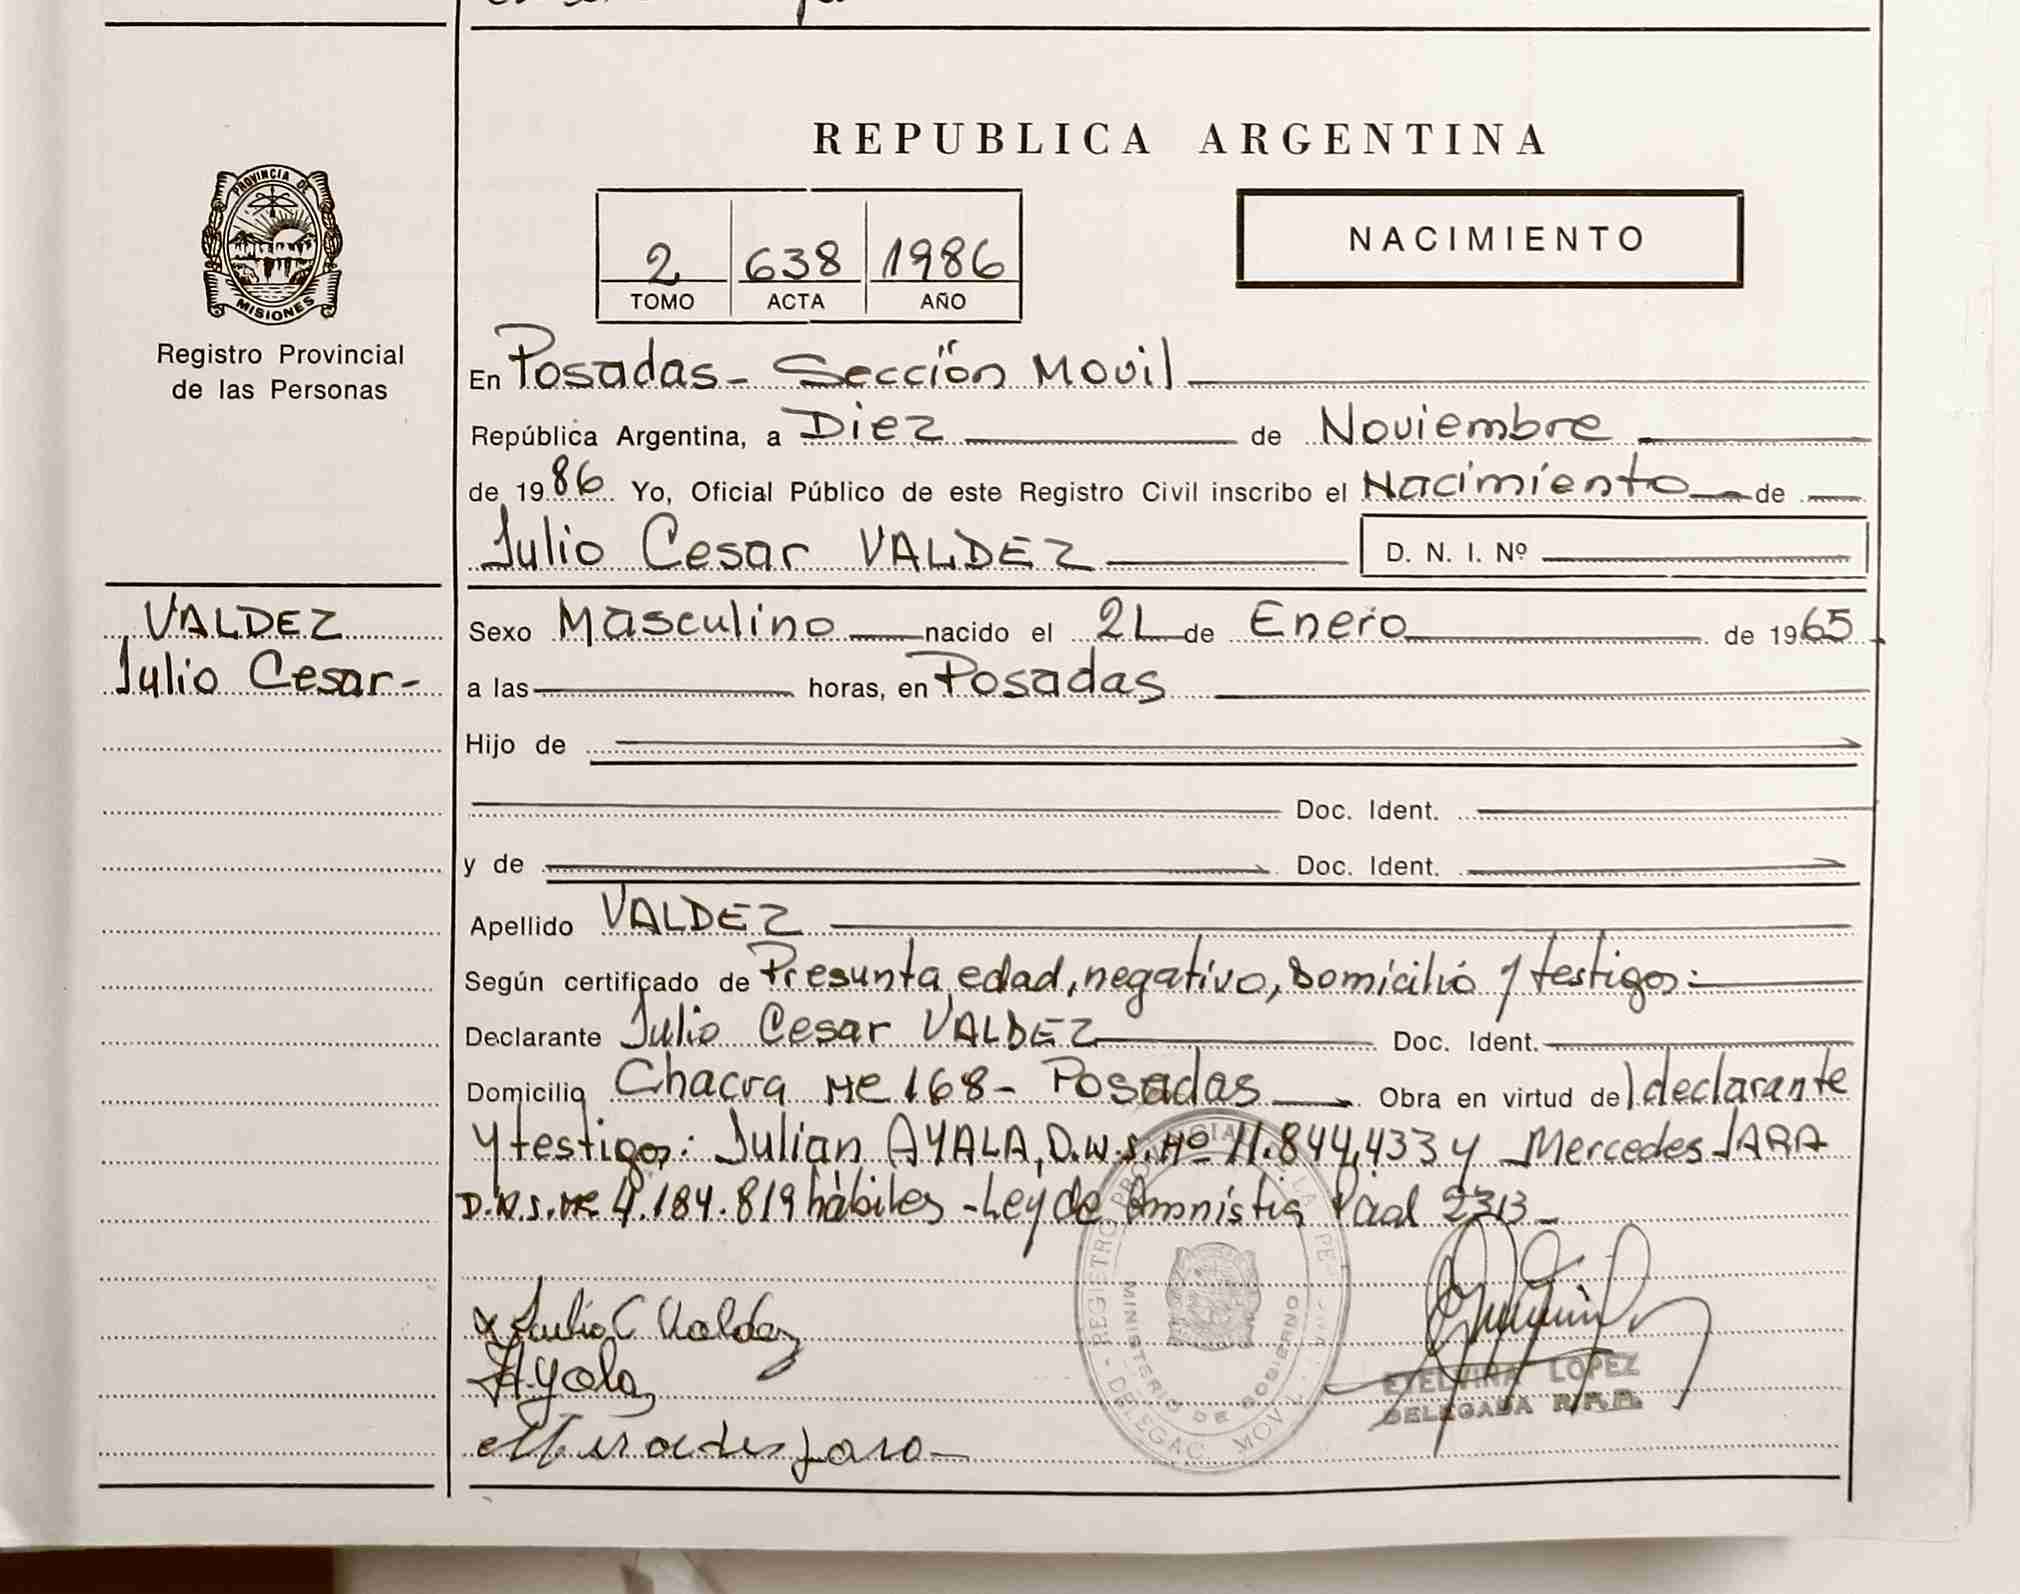 REPUBLICA ARGENTINA
PROVINCIA DE
MISIONES
Registro Provincial
de las Personas
2 638 1986
TOMO ACTA AÑO
NACIMIENTO
En Posadas - Sección Movil
República Argentina, a Diez de Noviembre
de 1986 Yo, Oficial Público de este Registro Civil inscribo el Nacimiento de
Julio Cesar VALDEZ D. N. I. Nº
VALDEZ
Julio Cesar-
Sexo Masculino nacido el 21 de Enero de 1965
a las horas, en Posadas
Hijo de
Doc. Ident.
y de Doc. Ident.
Apellido VALDEZ
Según certificado de Presunta edad, negativo, Domicilio y testigos:
Declarante Julio Cesar VALDEZ Doc. Ident.
Domicilio Chacra 168 - Posadas Obra en virtud de declarante
y testigos: Julian AYALA, Nº 11.844.433 y Mercedes JARA
4.184.819 hábiles - Ley de Amnistia 2313 -
Julio C Valdez
Ayala
Mercedes Jara
REGISTRO PROVINCIAL DE LAS PE
MINISTERIO DE GOBIERNO
DELEGAC. MOVIL
ETELVINA LOPEZ
DELEGADA R.P.P.